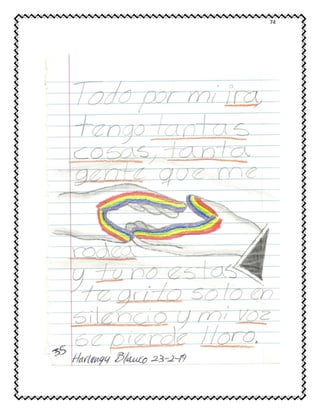 74
Todo por mi ira,
tengo tantas
cosas, tanta
gente que me
rodea
y tu no estas
te grito solo en
silencio y mi voz
se pierde lloro.
35
Harlengy Blanco 23-2-19